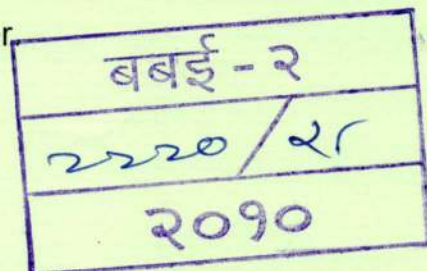 r
बबई - २
२२२० /
२०१०